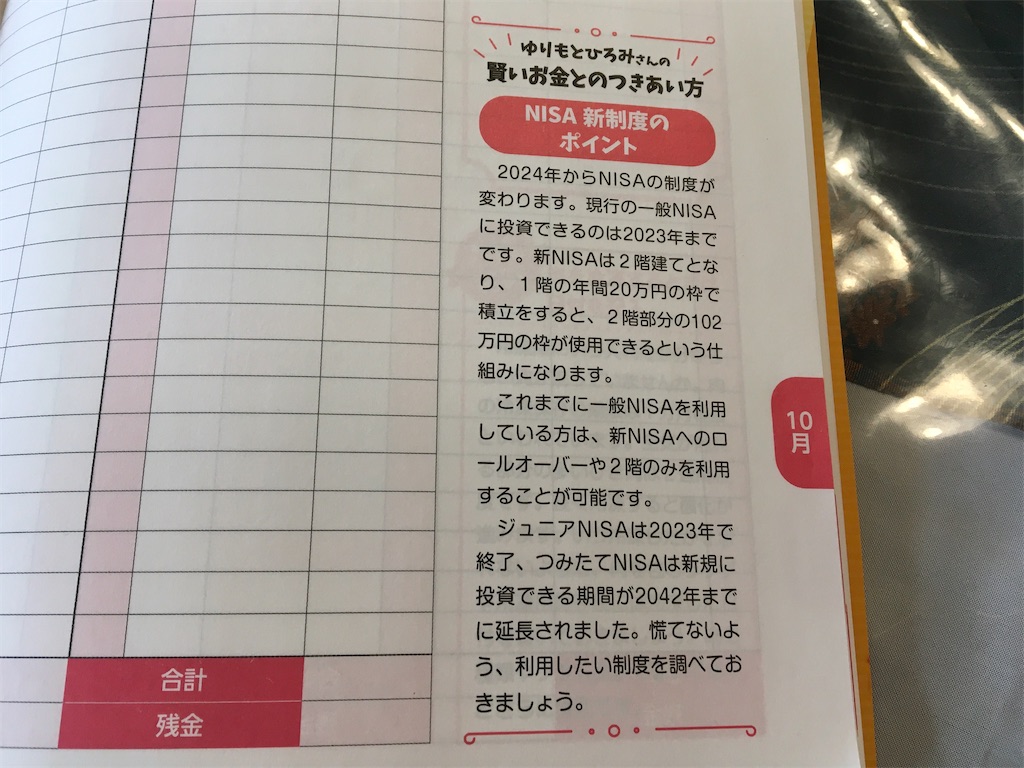 ゆりもとひろみさんの
賢いお金とのつきあい方
NISA 新制度の
ポイント
2024年からNISAの制度が
変わります。現行の一般NISA
に投資できるのは2023年まで
です。新NISAは２階建てとな
り、１階の年間20万円の枠で
積立をすると、２階部分の102
万円の枠が使用できるという仕
組みになります。
これまでに一般NISAを利用
している方は、新NISAへのロ
ールオーバーや２階のみを利用
することが可能です。
ジュニアNISAは2023年で
終了、つみたてNISAは新規に
投資できる期間が2042年まで
に延長されました。慌てないよ
う、利用したい制度を調べてお
きましょう。
10
月
合計
残金